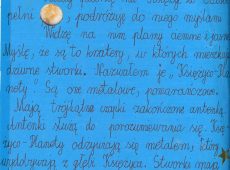 pełni podróżuję do niego myślami
Widzę na nim plamy ciemne i jasne
Myślę, że są to kratery, w których mieszkają
dziwne stworki. Nazwałem je " Księżyco-
Hanoty". Są one metalowe, pomarańczowe.
Mają trójkątne czapki zakończone antenką
Antenki służą do porozumiewania się. Księ-
życo-Hanoty odżywiają się metalem, który
wydobywają z głębi Księżyca. Stworki mają